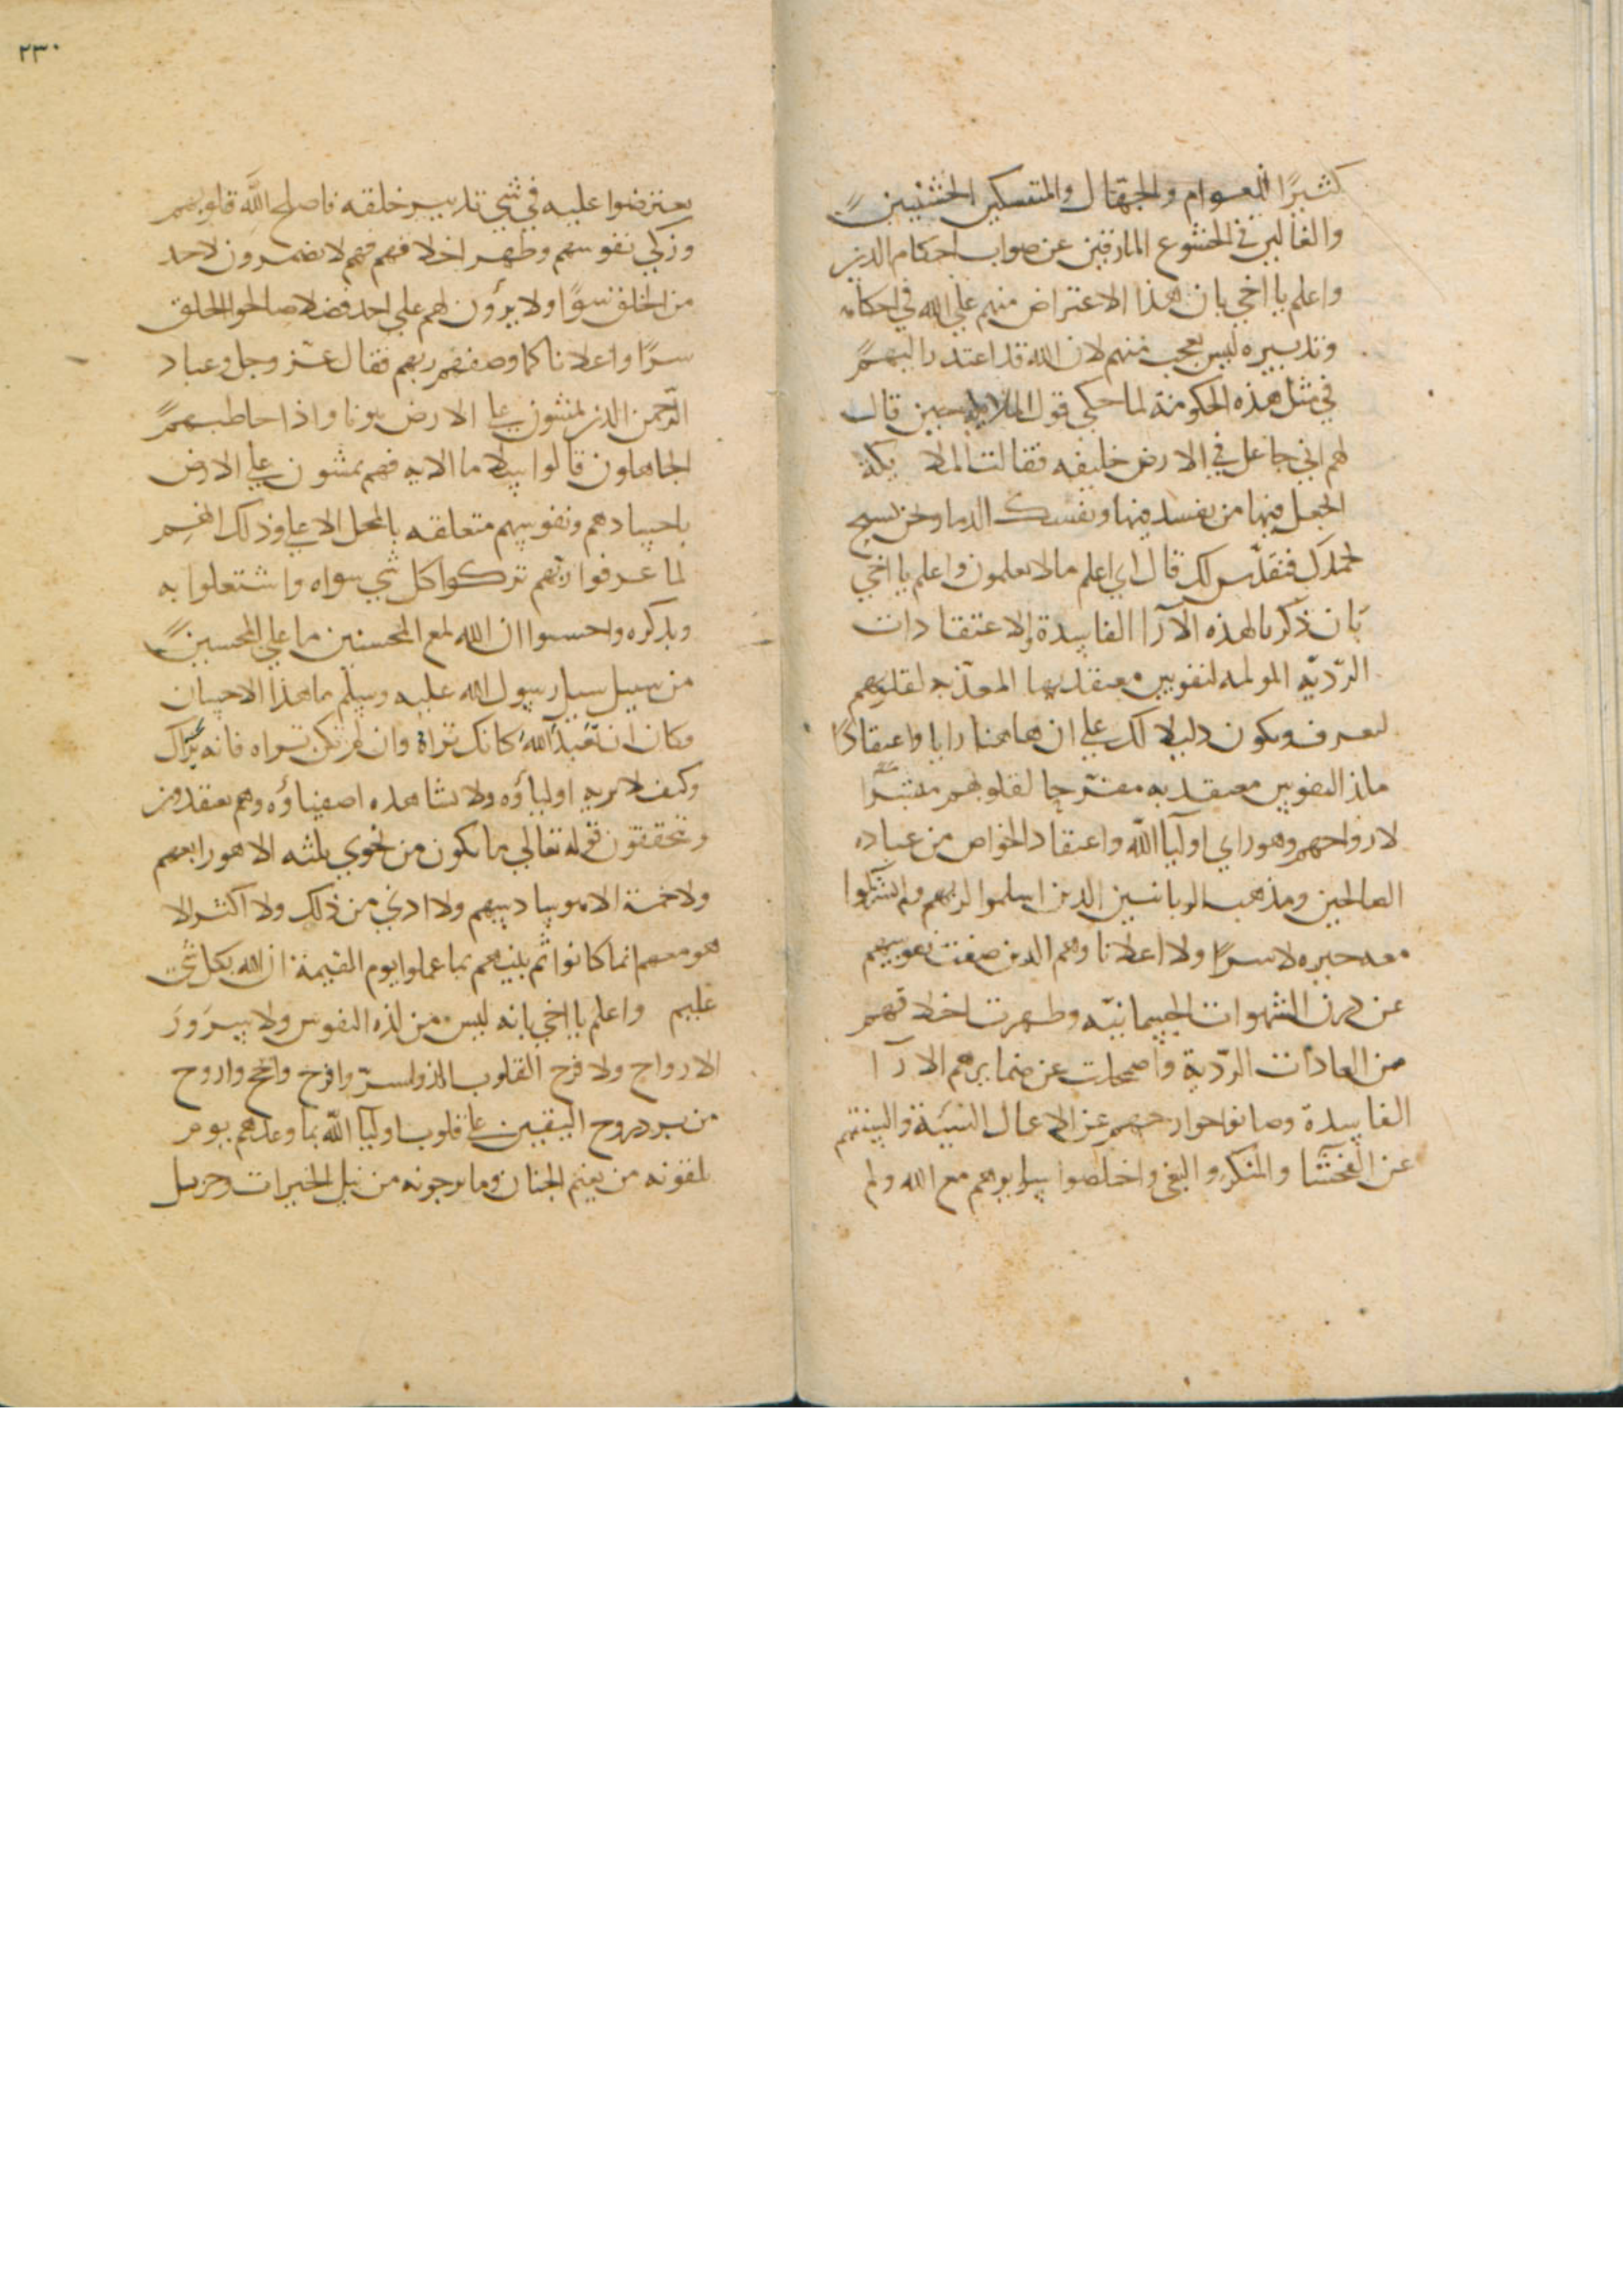 كثيرًا العوام والجهال والمتمسكين الخشنيين
والغالين في الخشوع المارقين عن صواب احكام الدين
واعلم يا اخي بان هذا الاعتراض منهم علي الله في احكامه
وتدبيره ليس بعجب منهم لان الله قد اعتذر اليهم
في مثل هذه الحكومة لما حكي قول الملايكه حين قال
لهم اني جاعل في الارض خليفه فقالت الملا يكة
اتجعل فيها من يفسد فيها ويفسك الدما ونحن نسبح
بحمدك ونقدّس لك قال اني اعلم مالا تعلمون واعلم يا اخي
بان ذكرنا لهذه الآرا الفاسدة والاعتقادات
الرّديّه المولمه لنفوس معتقديها المعذّبه لقلوبهم
ليعرف ويكون دليلا لك علي ان هاهنا رايا واعتقادًا
ملذ النفوس معتقديه مفرّحا لقلوبهم مبشّرًا
لارواحهم وهو راي اوليا الله واعتقاد الخواص من عباده
الصالحين ومذهب الربانيين الذين اسلموا لربهم ولم يشركوا
معه غيره لا سرًا ولا اعلانا وهم الذين صفت نفوسهم
عن درن الشهوات الجسمانيّه وطهرت اخلاقهم
من العادات الرّدية واضمحلت عن ضمايرهم الارآ
الفاسدة وصانوا جوارحهم عن الاعمال السيّئة والسنتهم
عن الفحشا والمنكر والبغي واخلصوا سرايرهم مع الله ولم
٢٣٠
يعترضوا عليه في شي تدبير خلقه فاصلح الله قلوبهم
وزكي نفوسهم وطهر اخلاقهم فهم لا يضمرون لاحد
من الخلق سوًا ولا يرون لهم علي احد فضلا صالحوا الخلق
سرًا واعلانا كما وصفهم ربهم فقال عزّ وجل وعباد
الرّحمن الذين يمشون علي الارض هونا واذا خاطبهم
الجاهلون قالوا سلاما الايه فهم يمشون علي الارض
باجسادهم ونفوسهم متعلقه بالمحل الاعلي وذلك انهم
لما عرفوا ربّهم تركوا كل شي سواه واشتغلوا به
وبذكره واحسنوا ان الله لمع المحسنين ما علي المحسنين
من سبيل سيل رسول الله عليه وسلّم ما هذا الاحسان
فكان ان تعبد الله كانك تراة وان لم تكن تراه فانه يراك
وكيف لا يريه اولياؤه ولا يشاهده اصفياؤه وهم يعتقدون
ويتحققون قوله تعالي ما يكون من نجوي ثلثه الا هو رابعهم
ولا خمسة الا هو سادسهم ولا ادني من ذلك ولا اكثر الا
هو معهم اينما كانوا ثم ينبيهم بما عملوا يوم القيمة ان الله بكل شي
عليم واعلم يا اخي بانه ليس من لذه النفوس ولا سرور
الارواح ولا فرح القلوب الذ ولا اسرّ وافرح وانجح واروح
من برد روح اليقين علي قلوب اوليا الله بما وعدهم يوم
يلقونه من نعيم الجنان وما يرجونه من نيل الخيرات وجزيل